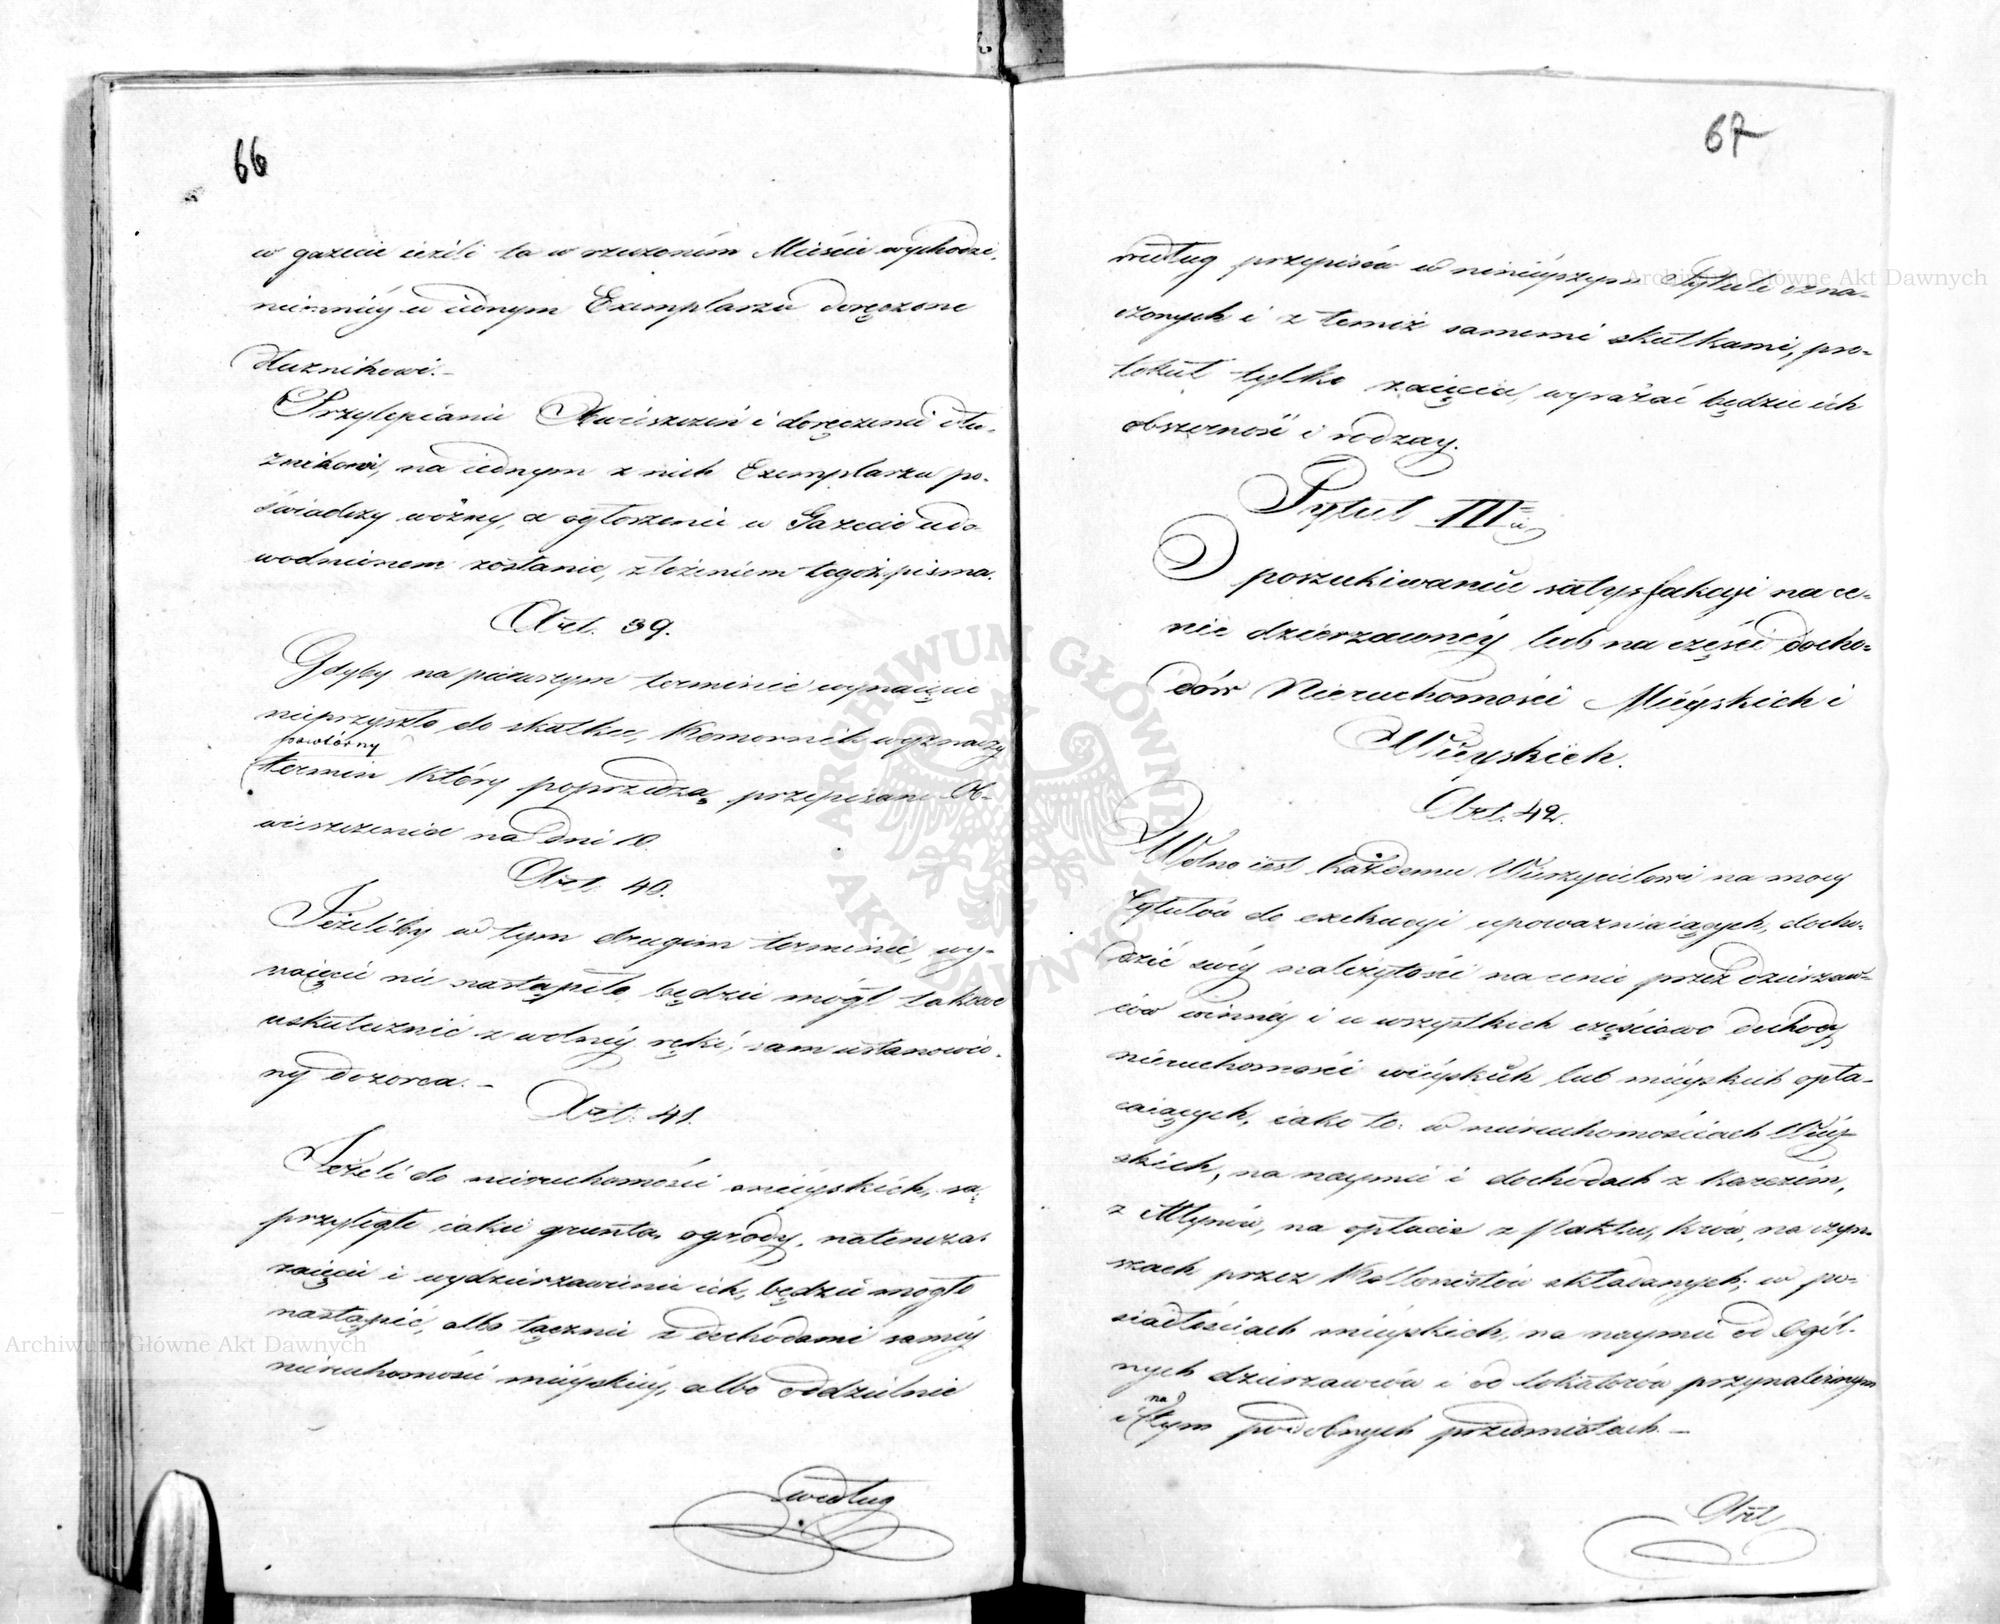 66
w gazecie ieżeli ta w rzeczonem Mieście wychodzi,
niemniéy w iednym Exemplarzu doręczone
dłużnikowi.-
Przylepianie Obwieszczeń i doręczenie dłu-
żnikowi, na iednym z nich Exemplarzu po-
świadczy woźny, a ogłoszenie w Gazecie udo-
wodnionem zostanie, złożeniem tegoż pisma.
Art. 39.
Gdyby na pierwszym terminie wynaięcie
nieprzyszło do skutku, Komornik wyznaczy
powtórny
termin który poprzedzą przepisane Ob-
wieszczenia na dni 10.
Art. 40.
Jeżeliby w tym drugim terminie, wy-
naięcie nie nastąpiło, będzie mógł takowe
uskutecznić z wolnéy ręki, sam ustanowio-
ny dozorca.-
Art. 41.
Jeżeli do nieruchomości mieyskich, są
przyległe iakie grunta, ogrody, natenczas
zaięcie i wydzierzawienie ich, będzie mogło
nastąpić, albo łącznie z dochodami saméy
nieruchomości mieyskiey, albo oddzielnie
według
67
według przepisów w ninieyszym Tytule ozna-
czonych i z temiż samemi skutkami, pro-
tokuł tylko zaięcia, wyrażać będzie ich
obszerność i rodzay.
Tytuł III
O poszukiwaniu satysfakcyi na ce-
nie dzierzawnéy lub na części docho-
dów Nieruchomości Mieyskich i
Wieyskich.
Art. 42.
Wolno iest każdemu Wierzycielowi na mocy
Tytułów do exekucyi upoważniaiących, docho-
dzić swéy należytości na cenie przez dzierzaw-
ców winnéy i u wszystkich częściowo dochody
nieruchomości wieyskich lub mieyskich opła-
caiących, iako to: w nieruchomościach Wiey-
skich, na naymie i dochodach z karczem,
z Młynów, na opłacie z Paktu, krów, na czyn-
szach przez Kollonistów składanych; w po-
siadłościach mieyskich, na naymie od ogól-
nych dzierzawców i od lokatorów przynależnym
na
i tym podobnych przedmiotach.-
Art
Archiwum Główne Akt Dawnych
Archiwum Główne Akt Dawnych
ARCHIWUM GŁÓWNE AKT DAWNYCH